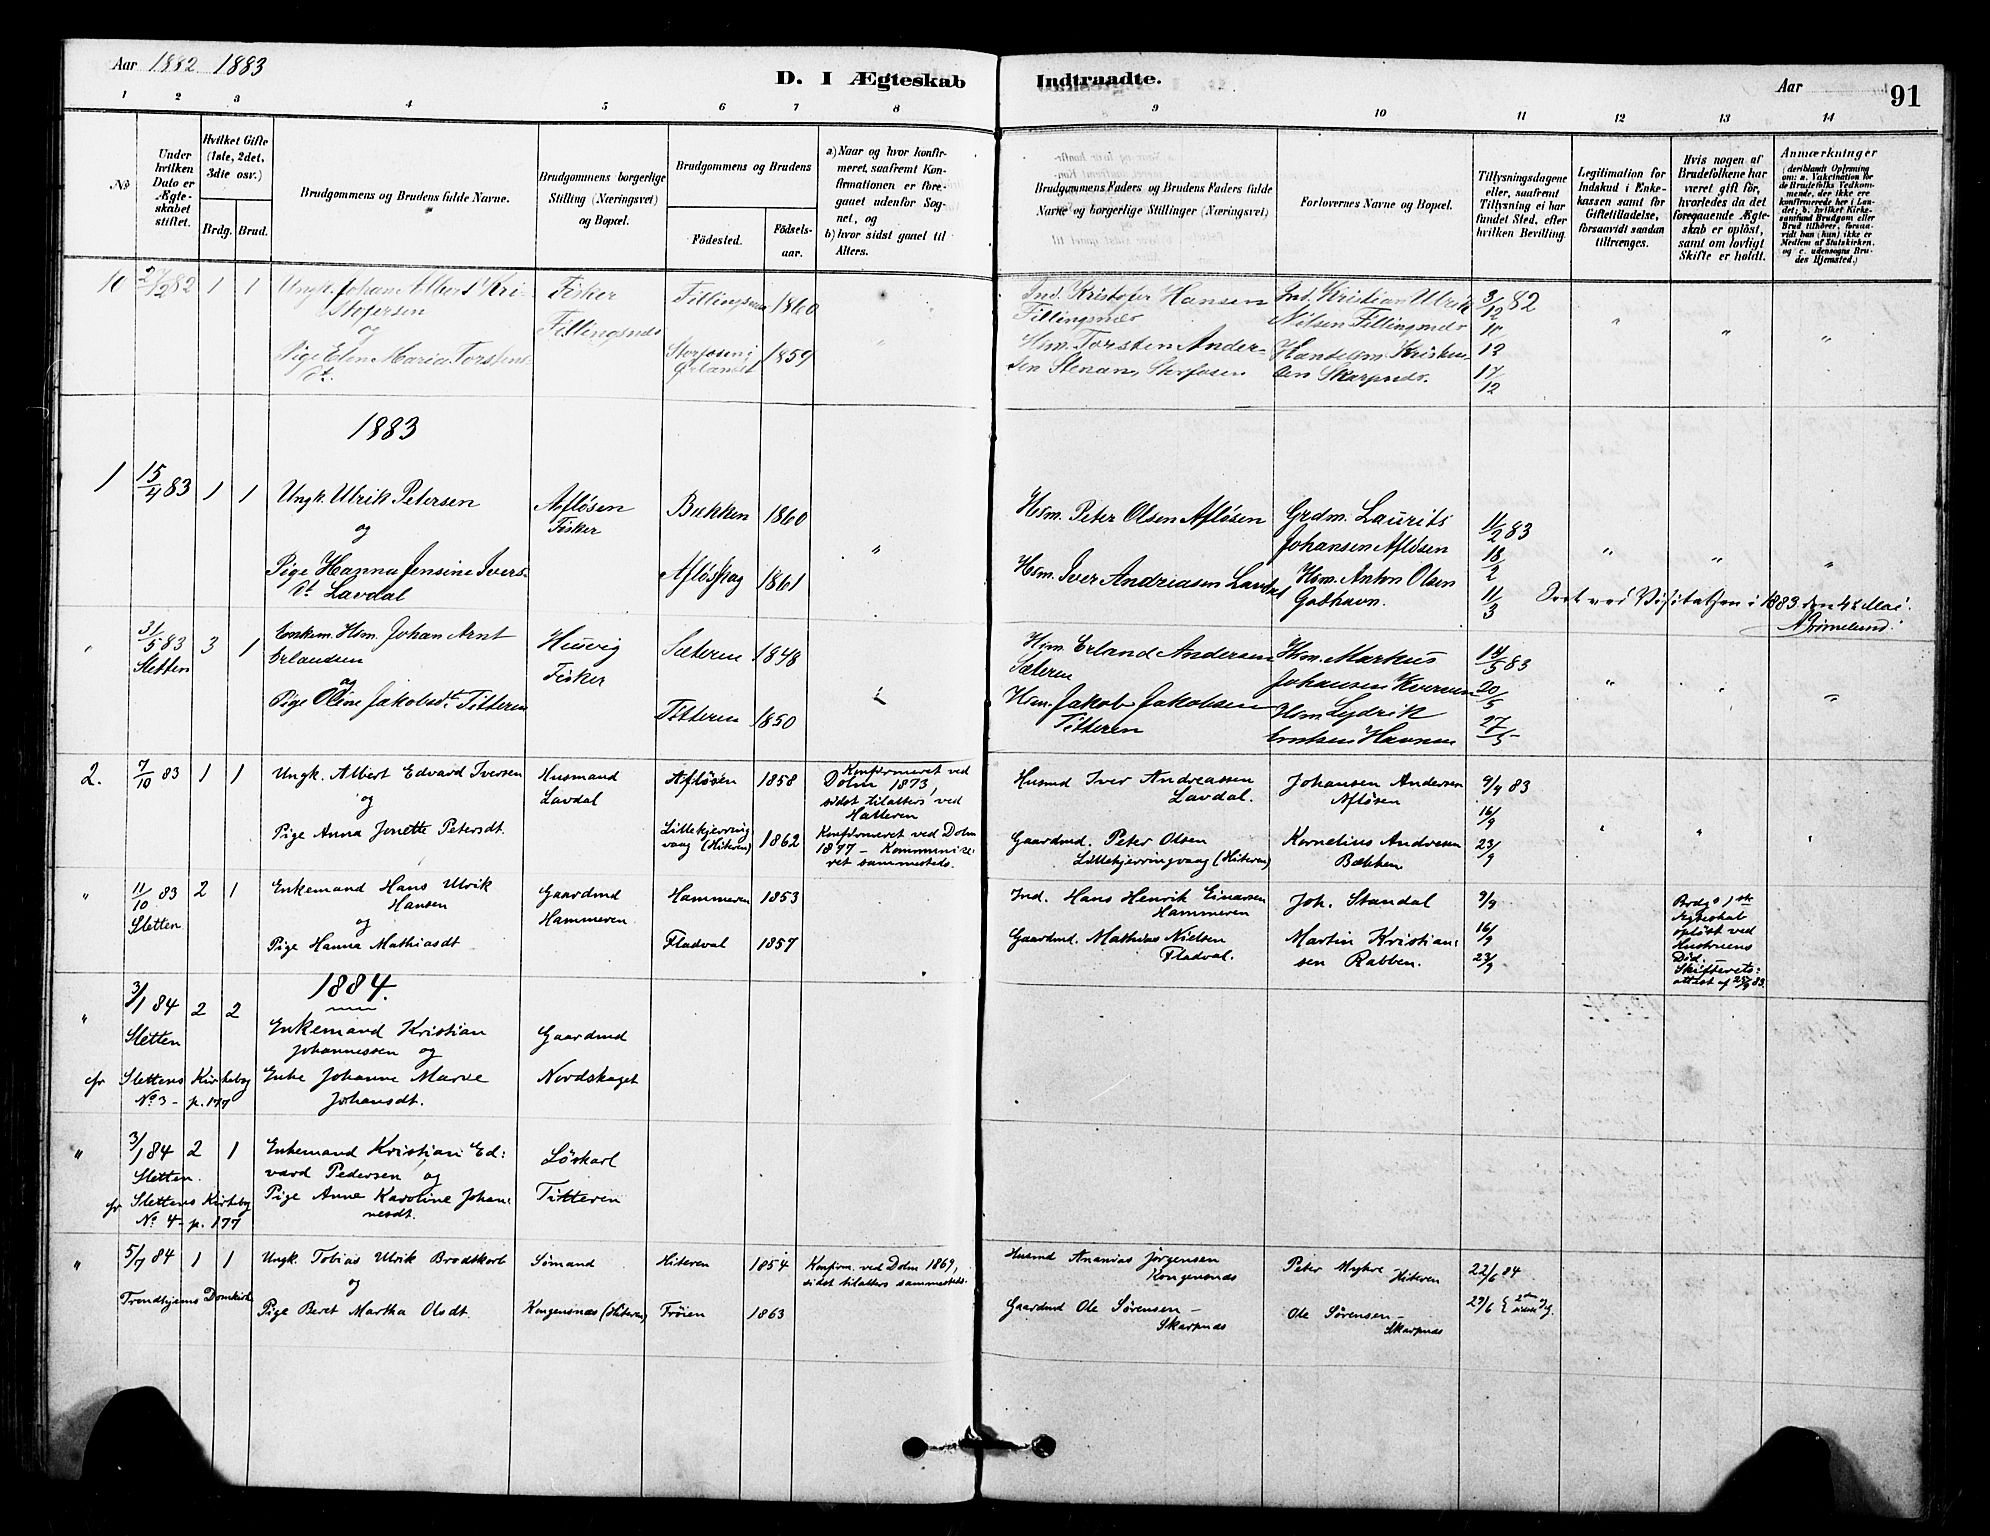 Aar 1882 1883
D. I Ægteskab Indtraadte.
Aar 91
1 2 3 4 5 6 7 8 9 10 11 12 13 14
No
Under hvilken Dato er Ægteskabet stiftet.
Hvilket Gifte (1ste, 2det, 3die osv.)
Brdg. Brud.
Brudgommens og Brudens fulde Navne.
Brudgommens borgerlige Stilling (Næringsvei) og Bopæl.
Brudgommens og Brudens
Födested. Födselsaar.
a) Naar og hvor konfirmeret, saafremt Konfirmationen er foregaaet udenfor Sognet, og
b) hvor sidst gaaet til Alters.
Brudgommens Faders og Brudens Faders fulde Navne og borgerlige Stillinger (Næringsvei)
Forlovernes Navne og Bopæl.
Tillysningsdagene eller, saafremt Tillysning ei har fundet Sted, efter hvilken Bevilling.
Legitimation for Indskud i Enkekassen samt for Giftetilladelse, forsaavidt saadan tiltrænges.
Hvis nogen af Brudefolkene har været gift før, hvorledes da det foregaaende Ægteskab er oplöst, samt om lovligt Skifte er holdt.
Anmærkninger
(deriblandt Oplysning om: a. Vakcination for de Brudefolks Vedkommende, der ikke ere konfirmerede her i Landet; b. hvilket Kirkesamfund Brudgom eller Brud tilhörer, forsaavidt han (hun) ikke er Medlem af Statskirken, og c. udensogns Brudes Hjemsted.)
10 82 1 1 Ungk. Johan Albert Kristofersen Fisker Fillingsnæs 1860 Ind. Kristofer Hansen Fillingsnæs Ind. Kristian Ulrik Nilsen Fillingsnæs 3/12 82 10
og
Pige Elen Maria Torstensdt. Storfosen i Ørlandet 1859 Hsm. Torsten Andersen Stenan, Storfosen Handelsm. Skarpnes. 12 17/12
1883
1 15/4 83 1 1 Ungk. Ulrik Petersen Afløsen Fisker Bukken 1860 " Hsm. Peter Olsen Afløsen Grdm. Laurits Johansen Afløsen 11/2 83 18/2 " " "
og
Pige Hanna Jensine Iversdt. Lavdal 1861 Hsm. Iver Andreasen Lavdal Hsm. Anton Olsen 11/3 ved Visitatsen i 1883 den 4de Mai.
" 31/5 83 Sletten 3 1 Enkem. Hsm. Johan Arnt Erlandsen Husvig Fisker Sæteren 1848 Hsm. Erland Andersen Sæteren Hsm. Markus Johansen Kvernen 14/5 83 20/5 " " "
og
Pige Oline Jakobsdt. Titteren Titteren 1850 Hsm. Jakob Jakobsen Titteren Hsm. Lydrik Havnen 27/5
2. 7/10 83 1 1 Ungk. Albert Edvard Iversen Husmand Lavdal Afløsen 1858 Konfirmeret ved Dolm 1873, sidst tilalters ved Hatteren Husmd Iver Andreassen Lavdal. Johansen Andersen Afløsen 9/9 83 16/9
og
Pige Anna Jonette Petersdt. Lillekjerringvaag (Hiteren) 1862 Konfirmeret ved Dolm 1877 – Kommuniceret sammesteds. Gaardmd. Peter Olsen Lillekjerringvaag (Hiteren) Kornelius Andresen Bækken 23/9
" 11/10 83 Sletten 2 1 Enkemand Hans Ulrik Hansen Gaardmd Hammeren Hammeren 1853 Ind. Hans Henrik Einarsen Hammeren Joh. Standal 9/9 Brdg's 1ste Ægteskab opløst ved Hustruens Død. – Skifterets:attest af 25/9 83.
og
Pige Hanna Mathiasdt Fladval 1857 Gaardmd. Mathias Nielsen Fladval. Martin Kristiansen Rabben. 16/9 23/9
1884.
" 3/1 84 Sletten 2 2 Enkemand Kristian Johannessen og Gaardmd
cfr Slettens Kirkebog No 3 – p. 177 Enke Johanne Marie Johansdt. Nordskaget
" 3/1 84 Sletten. 2 1 Enkemand Kristian Edvard Pedersen og Löskarl
cfr Slettens Kirkebog No 4 – p. 177 Pige Anne Karoline Johannesdt. Titteren
" 5/7 84 1 1 Ungk. Tobias Ulrik Brodtkorb Sømand Hiteren 1854 Konfirm. ved Dolm 1869, sidst tilalters sammesteds. Husmd Ananias Jørgensen Kongensnæs Peter Myhre Hiteren 22/6 84
og
Trondhjems Domkirke Pige Beret Martha Olsdt. Kongensnæs (Hiteren) Frøien 1863 Gaardmd Ole Sørensen – Skarpnæs Ole Sørensen – Skarpnæs 29/6